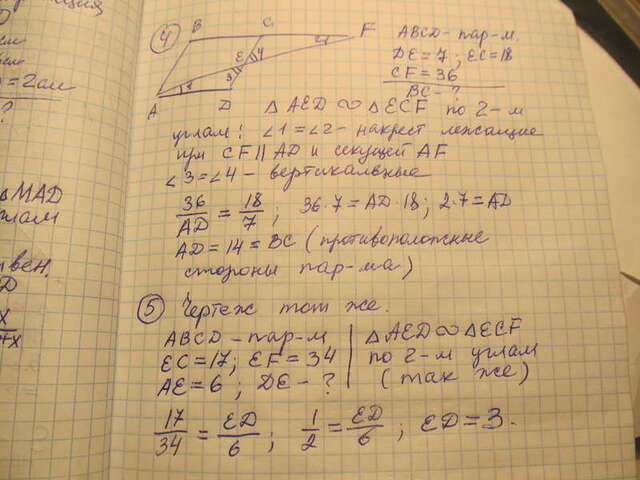 4
B C F
E 4
3
1 2
A D
ABCD - пар-м.
DE = 7 ; EC = 18
CF = 36
BC - ?
△ AED ∾ △ ECF по 2-м
углам: ∠1 = ∠2 - накрест лежащие
при CF || AD и секущей AF
∠3 = ∠4 - вертикальные
36/AD = 18/7 ; 36·7 = AD·18 ; 2·7 = AD
AD = 14 = BC (противоположные
стороны пар-ма)
5 Чертеж тот же.
ABCD - пар-м
EC = 17; EF = 34
AE = 6 ; DE - ?
△ AED ∾ △ ECF
по 2-м углам
(так же)
17/34 = ED/6 ; 1/2 = ED/6 ; ED = 3.
= 2см
?
△MAD
D
x